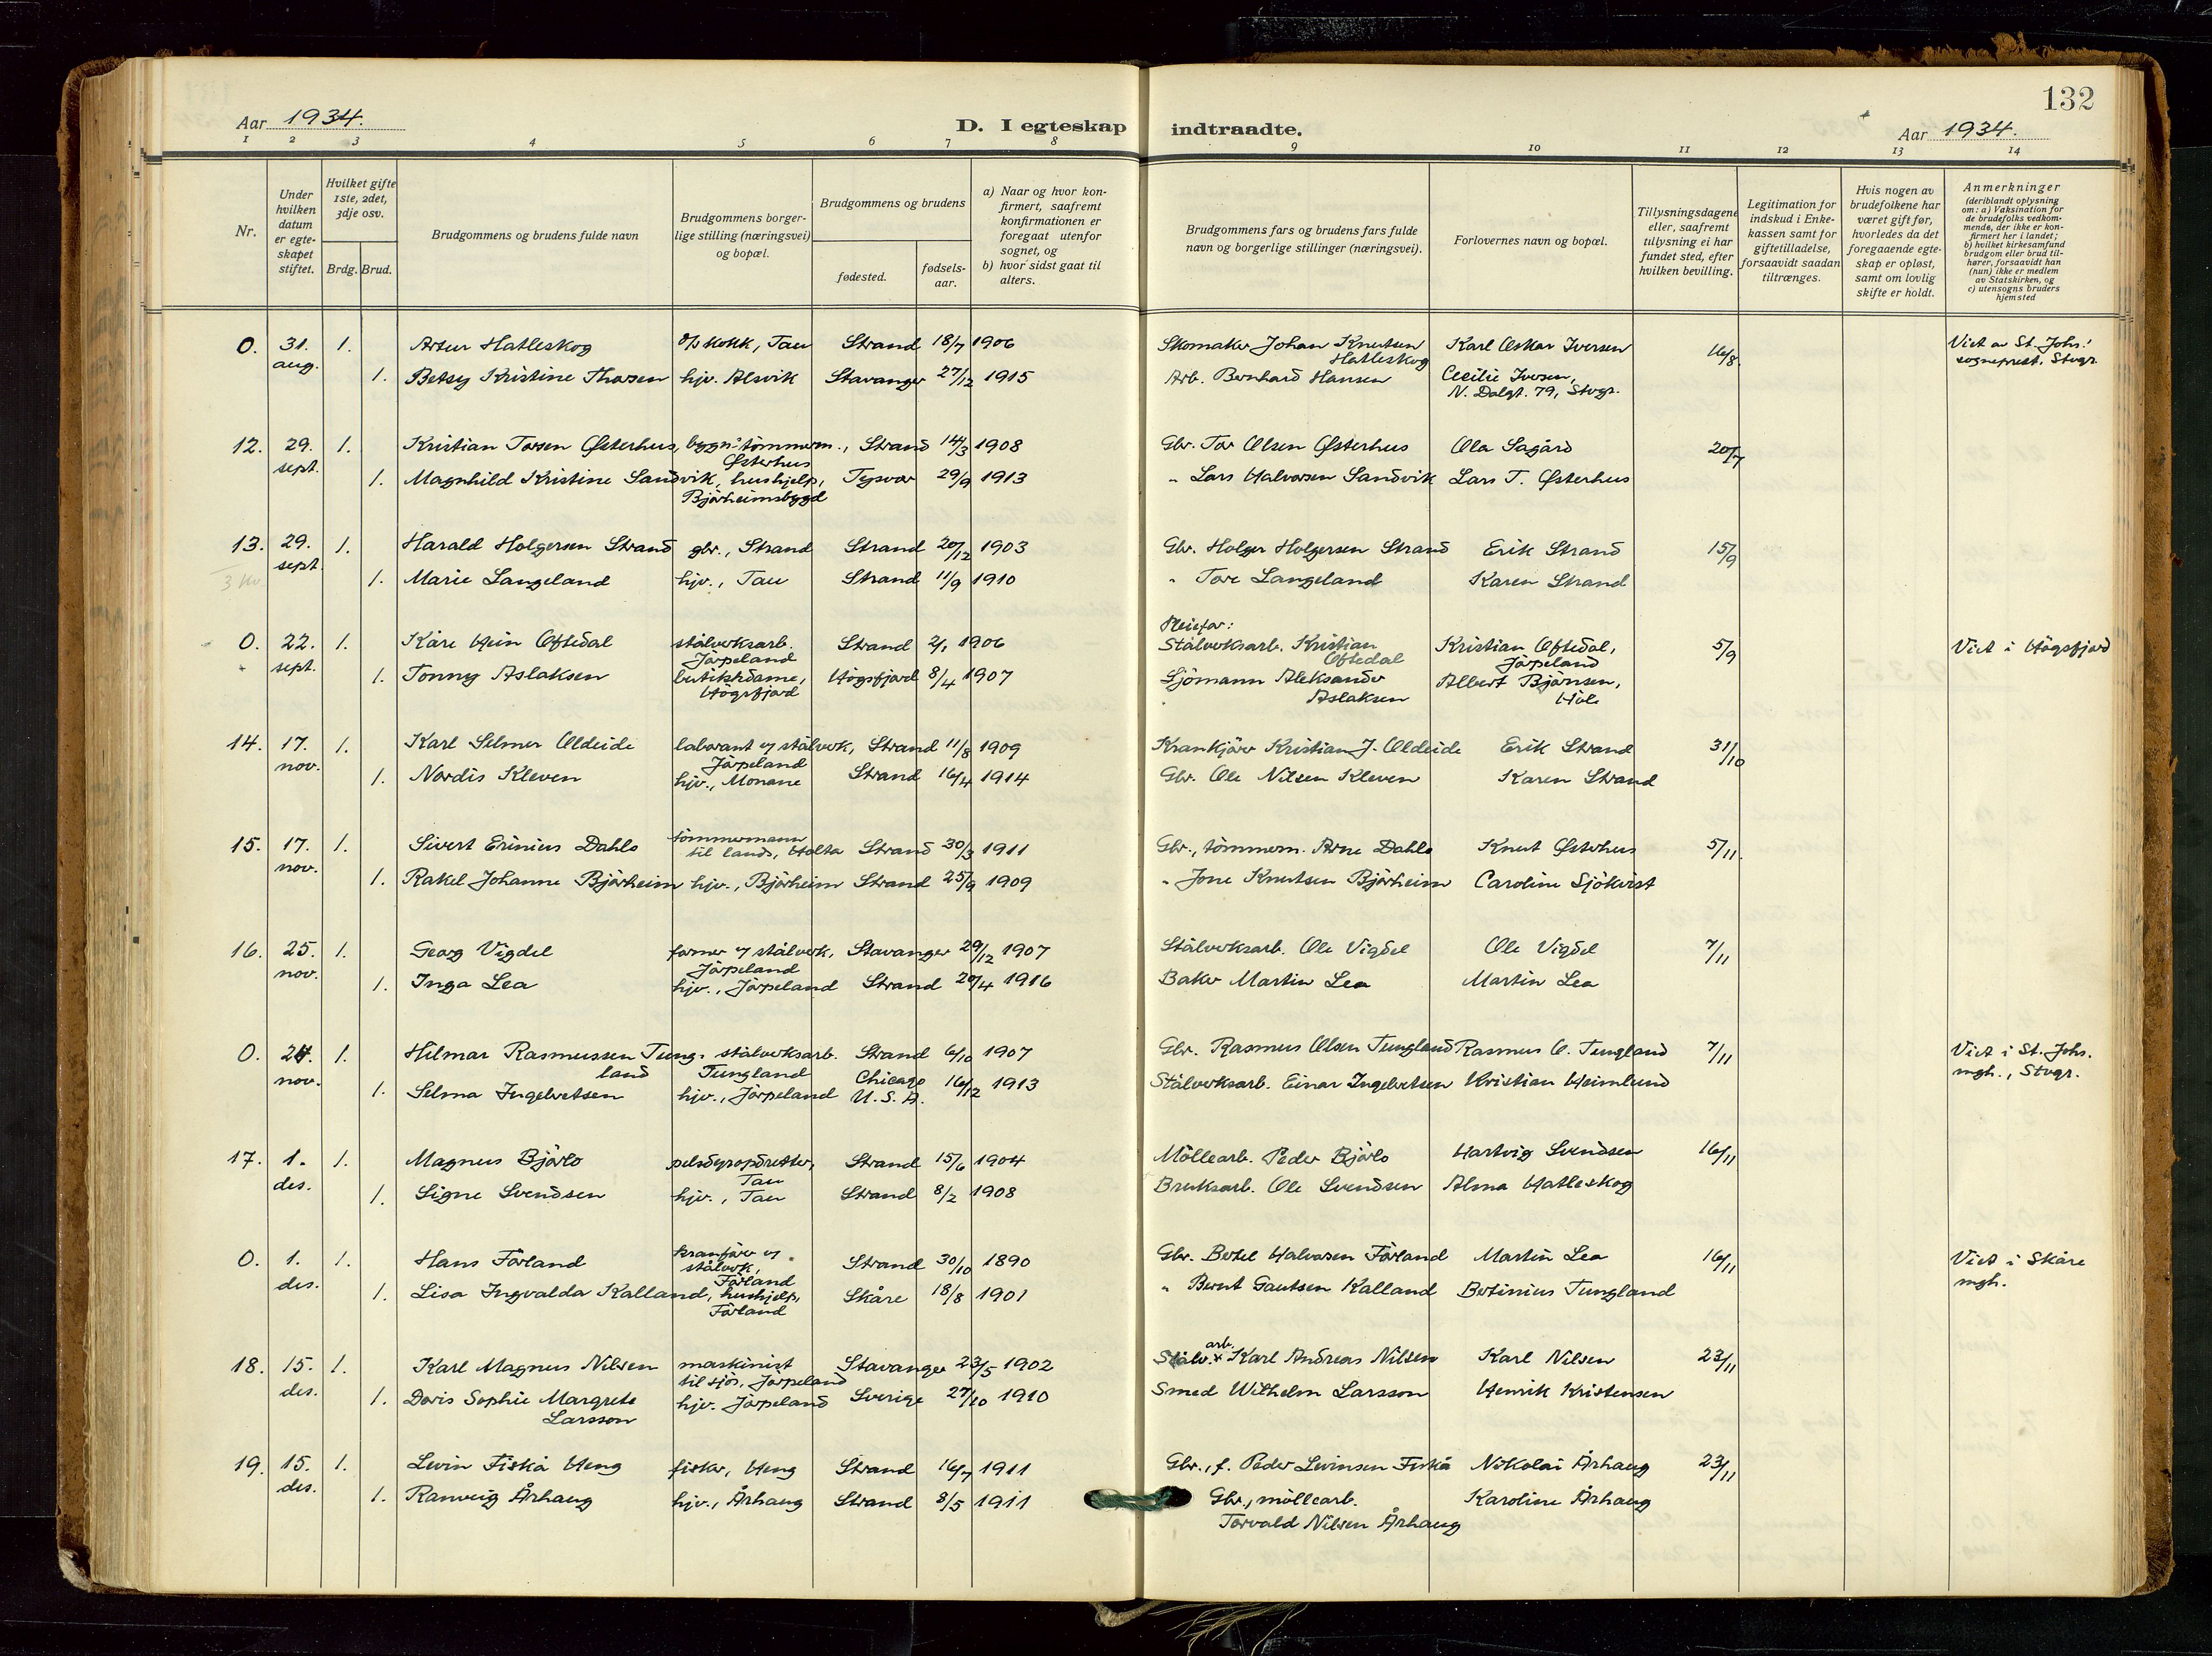 132
Aar 1934.
D. I egteskap indtraadte.
Aar 1934.
1 2 3 4 5 6 7 8 9 10 11 12 13 14
Nr.
Under hvilken datum er egte-skapet stiftet.
Hvilket gifte 1ste, 2det, 3dje osv.
Brdg. Brud.
Brudgommens og brudens fulde navn
Brudgommens borger-lige stilling (næringsvei) og bopæl.
Brudgommens og brudens
fødested.
fødsels-aar.
a) Naar og hvor kon-firmert, saafremt konfirmationen er foregaat utenfor sognet, og
b) hvor sidst gaat til alters.
Brudgommens fars og brudens fars fulde navn og borgerlige stillinger (næringsvei).
Forlovernes navn og bopæl.
Tillysningsdagene eller, saafremt tillysning ei har fundet sted, efter hvilken bevilling.
Legitimation for indskud i Enke-kassen samt for giftetilladelse, forsaavidt saadan tiltrænges.
Hvis nogen av brudefolkene har været gift før, hvorledes da det foregaaende egte-skap er opløst, samt om lovlig skifte er holdt.
Anmerkninger (deriblandt oplysning om: a) Vaksination for de brudefolks vedkom-mende, der ikke er kon-firmert her i landet; b) hvilket kirkesamfund brudgom eller brud til-hører, forsaavidt han (hun) ikke er medlem av Statskirken, og c) utensogns bruders hjemsted
0. 31. aug. 1. Artur Hatleskog kokk, Tau Strand 18/7 1906 Skomaker Johan Knutsen Hatleskog Karl Oskar Iversen 16/8. Viet av St. Johs. sogneprest, Stvgr.
1. Betsy Kristine Thorsen hjv. Alsvik Stavanger 27/12 1915 Arb. Bernhard Hansen Cecilie Iversen, N. Dalgt. 79, Stvgr.
12. 29. sept. 1. Kristian Torsen Østerhus, bygn.tømmerm., Østerhus Strand 14/3 1908 Gbr. Tor Olsen Østerhus Ola Sagård 20/7
1. Magnhild Kristine Sandvik, hushjelp, Bjørheimsbygd Tysvær 29/9 1913 " Lars Halvorsen Sandvik Lars T. Østerhus
13. 29. sept. 1. Harald Holgersen Strand gbr., Strand Strand 20/12 1903 Gbr. Holger Holgersen Strand Erik Strand 15/9
1. Marie Langeland hjv., Tau Strand 11/9 1910 " Tore Langeland Karen Strand
0. 22. sept. 1. Kåre Hein Oftedal stålverksarb. Jørpeland Strand 2/1 1906 Pleiefar: Stålverksarb. Kristian Oftedal Kristian Oftedal, Jørpeland 5/9 Viet i Høgsfjord
1. Tonny Aslaksen butikkdame, Høgsfjord Høgsfjord 8/4 1907 Sjømann Aleksander Aslaksen Albert Bjørnsen, Høle
14. 17. nov. 1. Karl Selmer Oldeide laborant v/ stålverk, Jørpeland Strand 11/8 1909 Krankjører Kristian J. Oldeide Erik Strand 31/10
1. Nordis Kleven hjv., Monane Strand 16/4 1914 Gbr. Ole Nilsen Kleven Karen Strand
15. 17. nov. 1. Sivert Erinius Dahle tømmermann til lands, Holta Strand 30/3 1911 Gbr., tømmerm. Arne Dahle Knut Østerhus 5/11.
1. Rakel Johanne Bjørheim hjv., Bjørheim Strand 25/9 1909 " Jone Knutsen Bjørheim Caroline Sjökvist
16. 25. nov. 1. Georg Vigdel former v/ stålverk, Jørpeland Stavanger 29/12 1907 Stålverksarb. Ole Vigdel Ole Vigdel 7/11
1. Inga Lea hjv., Jørpeland Strand 20/4 1916 Baker Martin Lea Martin Lea
0. 24. nov. 1. Hilmar Rasmussen Tungland stålverksarb. Tungland Strand 6/10 1907 Gbr. Rasmus Olsen Tungland Rasmus O. Tungland 7/11 Viet i St. Johs. mgh., Stvgr.
1. Selma Ingelvetsen hjv., Jørpeland Chicago U.S.A. 16/12 1913 Stålverksarb. Einar Ingelvetsen Kristian Heimlund
17. 1. des. 1. Magnus Bjørlo pelsdyropdretter, Tau Strand 15/6 1904 Møllearb. Peder Bjørlo Hartvig Svendsen 16/11
1. Signe Svendsen hjv., Tau Strand 8/2 1908 Bruksarb. Ole Svendsen Alma Hatleskog
0. 1. des. 1. Hans Førland krankjører v/ stålverk, Førland Strand 30/10 1890 Gbr. Bertel Halvorsen Førland Martin Lea 16/11 Viet i Skåre mgh.
1. Lisa Ingvalda Kalland, hushjelp, Førland Skåre 18/8 1901 " Bernt Gautsen Kalland Bertinius Tungland
18. 15. des. 1. Karl Magnus Nilsen maskinist til sjøs, Jørpeland Stavanger 23/5 1902 Stålv.arb. Karl Andreas Nilsen Karl Nilsen 23/11
1. Doris Sophie Margrete Larsson hjv. Jørpeland Sverige 27/10 1910 Smed Wilhelm Larsson Henrik Kristensen
19. 15. des. 1. Levin Fiskå Heng fisker, Heng Strand 16/7 1911 Gbr., f. Peder Levinsen Fiskå Nikolai Århaug 23/11
1. Ranveig Århaug hjv., Århaug Strand 8/5 1911 Gbr., møllearb. Torvald Nilsen Århaug Karoline Århaug